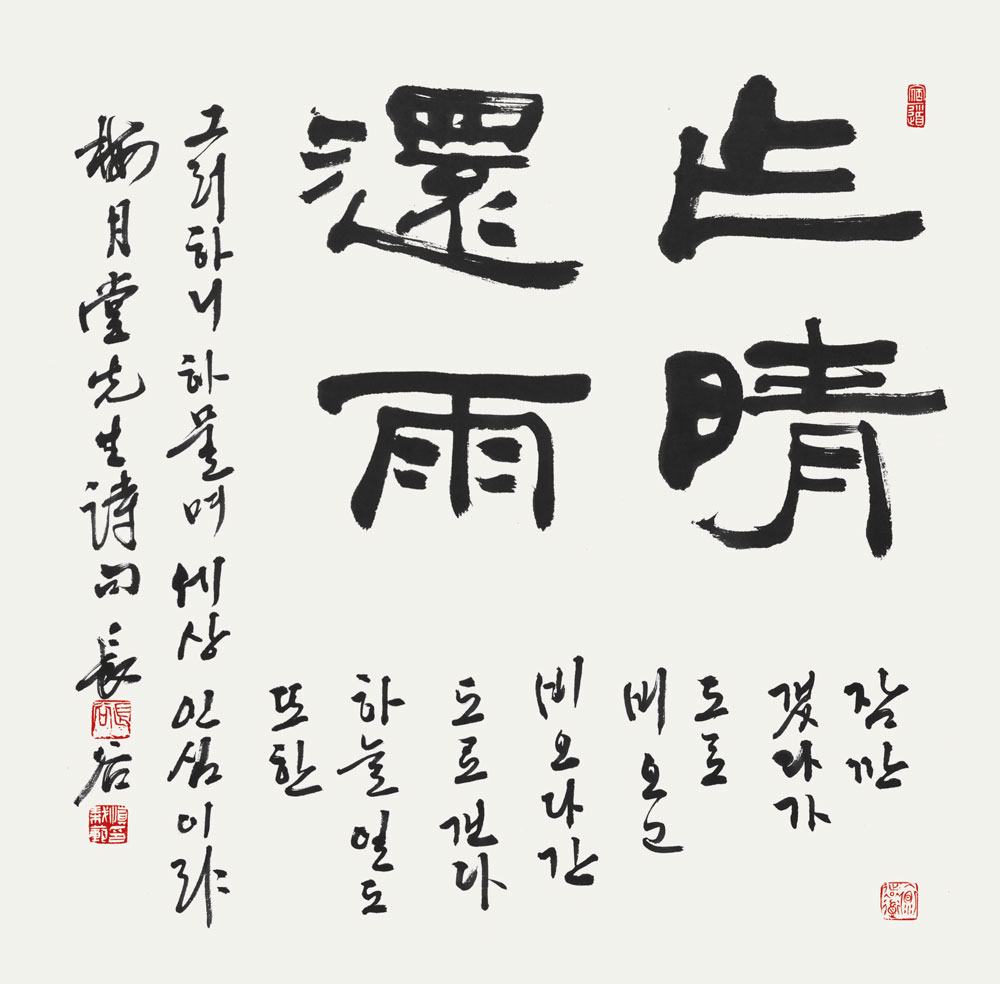 乍晴
還雨
잠깐
갰다가
도로
비오고
비오다간
도로갠다
하늘일도
또한
그러하니 하물며 세상 인심이랴
梅月堂先生詩句 長谷